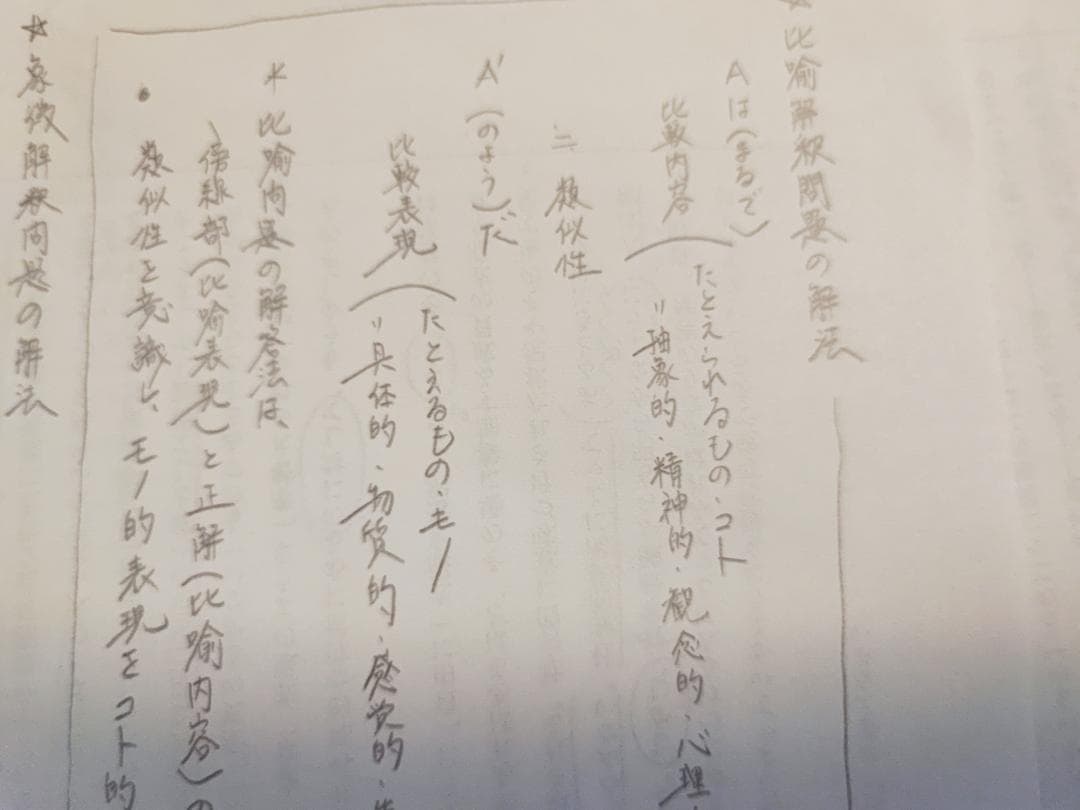 ☆比喩解釈問題の解法
Aは(まるで)
比較内容(たとえられるもの・コト
=抽象的・精神的・観念的・心理
=類似性
A'(のよう)だ
比較表現(たとえるもの・モノ
=具体的・物質的・感覚的・
*比喩問題の解答法は、
、傍線部(比喩表現)と正解(比喩内容)の
・類似性を意識し、モノ的表現をコト的
☆象徴解釈問題の解法